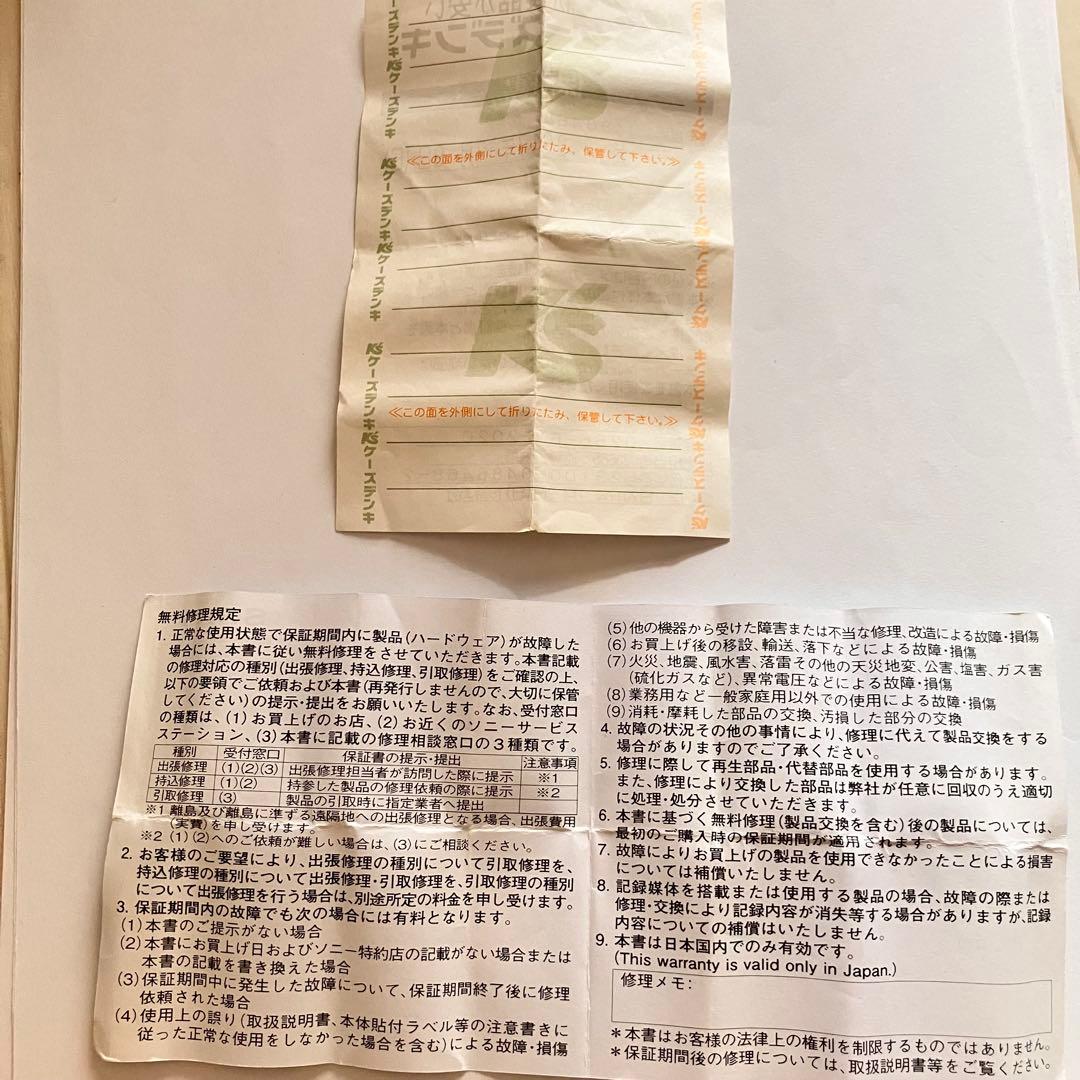 ズデンキ
K'sケーズデンキ
≪この面を外側にして折りたたみ、保管して下さい。≫
K'sケーズデンキ
K'sケーズデンキ
K's
K'sケーズデンキ
≪この面を外側にして折りたたみ、保管して下さい。≫
K'sケーズデンキ
無料修理規定
1. 正常な使用状態で保証期間内に製品(ハードウェア)が故障した
場合には、本書に従い無料修理をさせていただきます。本書記載
の修理対応の種別(出張修理、持込修理、引取修理)をご確認の上、
以下の要領でご依頼および本書(再発行しませんので、大切に保管
してください)の提示・提出をお願いいたします。なお、受付窓口
の種類は、(1)お買上げのお店、(2)お近くのソニーサービス
ステーション、(3)本書に記載の修理相談窓口の3種類です。
種別 受付窓口 保証書の提示・提出 注意事項
出張修理 (1)(2)(3) 出張修理担当者が訪問した際に提示 ※1
持込修理 (1)(2) 持参した製品の修理依頼の際に提示 ※2
引取修理 (3) 製品の引取時に指定業者へ提出
※1 離島及び離島に準ずる遠隔地への出張修理となる場合、出張費用
(実費)を申し受けます。
※2 (1)(2)へのご依頼が難しい場合は、(3)にご相談ください。
2. お客様のご要望により、出張修理の種別について引取修理を、
持込修理の種別について出張修理・引取修理を、引取修理の種別
について出張修理を行う場合は、別途所定の料金を申し受けます。
3. 保証期間内の故障でも次の場合には有料となります。
(1)本書のご提示がない場合
(2)本書にお買上げ日およびソニー特約店の記載がない場合または
本書の記載を書き換えた場合
(3)保証期間中に発生した故障について、保証期間終了後に修理
依頼された場合
(4)使用上の誤り(取扱説明書、本体貼付ラベル等の注意書きに
従った正常な使用をしなかった場合を含む)による故障・損傷
(5)他の機器から受けた障害または不当な修理、改造による故障・損傷
(6)お買上げ後の移設、輸送、落下などによる故障・損傷
(7)火災、地震、風水害、落雷その他の天災地変、公害、塩害、ガス害
(硫化ガスなど)、異常電圧などによる故障・損傷
(8)業務用など一般家庭用以外での使用による故障・損傷
(9)消耗・摩耗した部品の交換、汚損した部分の交換
4. 故障の状況その他の事情により、修理に代えて製品交換をする
場合がありますのでご了承ください。
5. 修理に際して再生部品・代替部品を使用する場合があります。
また、修理により交換した部品は弊社が任意に回収のうえ適切
に処理・処分させていただきます。
6. 本書に基づく無料修理(製品交換を含む)後の製品については、
最初のご購入時の保証期間が適用されます。
7. 故障によりお買上げの製品を使用できなかったことによる損害
については補償いたしません。
8. 記録媒体を搭載または使用する製品の場合、故障の際または
修理・交換により記録内容が消失等する場合がありますが、記録
内容についての補償はいたしません。
9. 本書は日本国内でのみ有効です。
(This warranty is valid only in Japan.)
修理メモ:
＊本書はお客様の法律上の権利を制限するものではありません。
＊保証期間後の修理については、取扱説明書等をご覧ください。